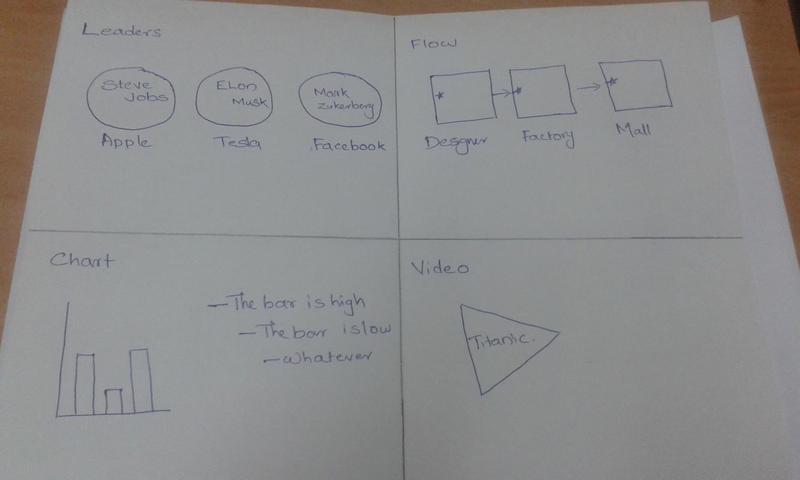 Leaders
Steve
Jobs
Elon
Musk
Mark
Zukerberg
Apple
Tesla
Facebook
Flow
Designer
Factory
Mall
Chart
- The bar is high
- The bar is low
- whatever
Video
Titanic.